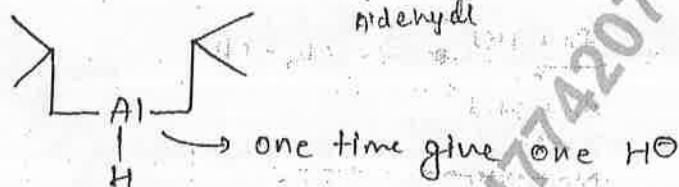 Aldehydl
Al
one time give one H⊖
H
774207